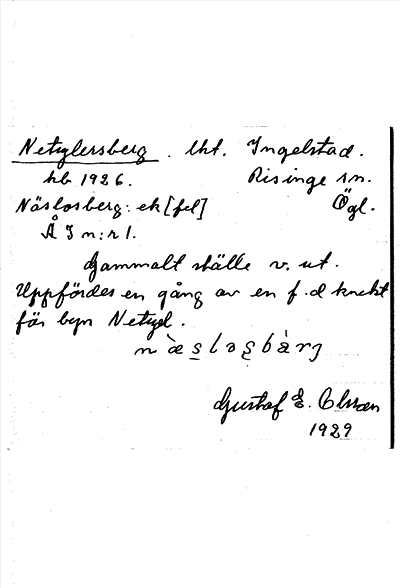 Netzlersberg. lht. Ingelstad.
hb 1926. Risinge sn.
Näslosberg: ek [fel] Ögl.
Å I n:r 1.
Gammalt ställe v. ut.
Uppfördes en gång av en f.d knekt
för byn
næslasbàrj
Gustaf E. Olsson
1929